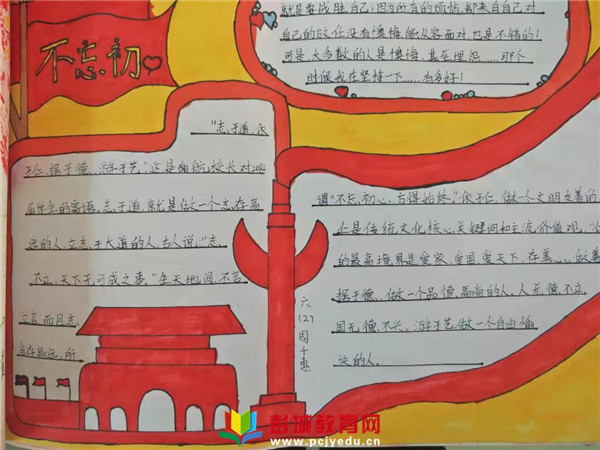 不忘初
就是要战胜自己;因为所有的烦恼,都来自自己对
自己的放任没有懊悔,能从容面对,也是不错的!
可是,大多数的人是懊悔,甚至埋怨……那个
时候我在坚持一下……有多好!
"志于道,依
于仁,据于德,游于艺,"这是 校长对20
届毕业生的寄语,志于道,就是做一个志存高
远的人,立志于大道的人。古人说:"志
不立,天下无可成之事。"生天地间,不言
立言,而且志
当存高远,所
谓"不忘初心,方得始终。"依于仁,做一个文明友善的
仁是传统文化核心关键词和主流价值观,"仁
的最高境界是爱家、爱国、爱天下,存善 、做善
据于德、做一个品德高尚的人。人无德不立,
国无德不兴。游于艺,做一个自由愉
快的人。
六(2)周十惠
彭城教育网
www.pcjyedu.cn